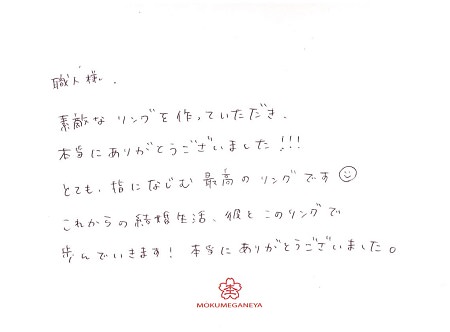 職人様.
素敵なリングを作っていただき.
本当にありがとうございました!!!
とても、指になじむ最高のリングです☺
これからの結婚生活、彼とこのリングで
歩んでいきます! 本当にありがとうございました。
MOKUMEGANEYA